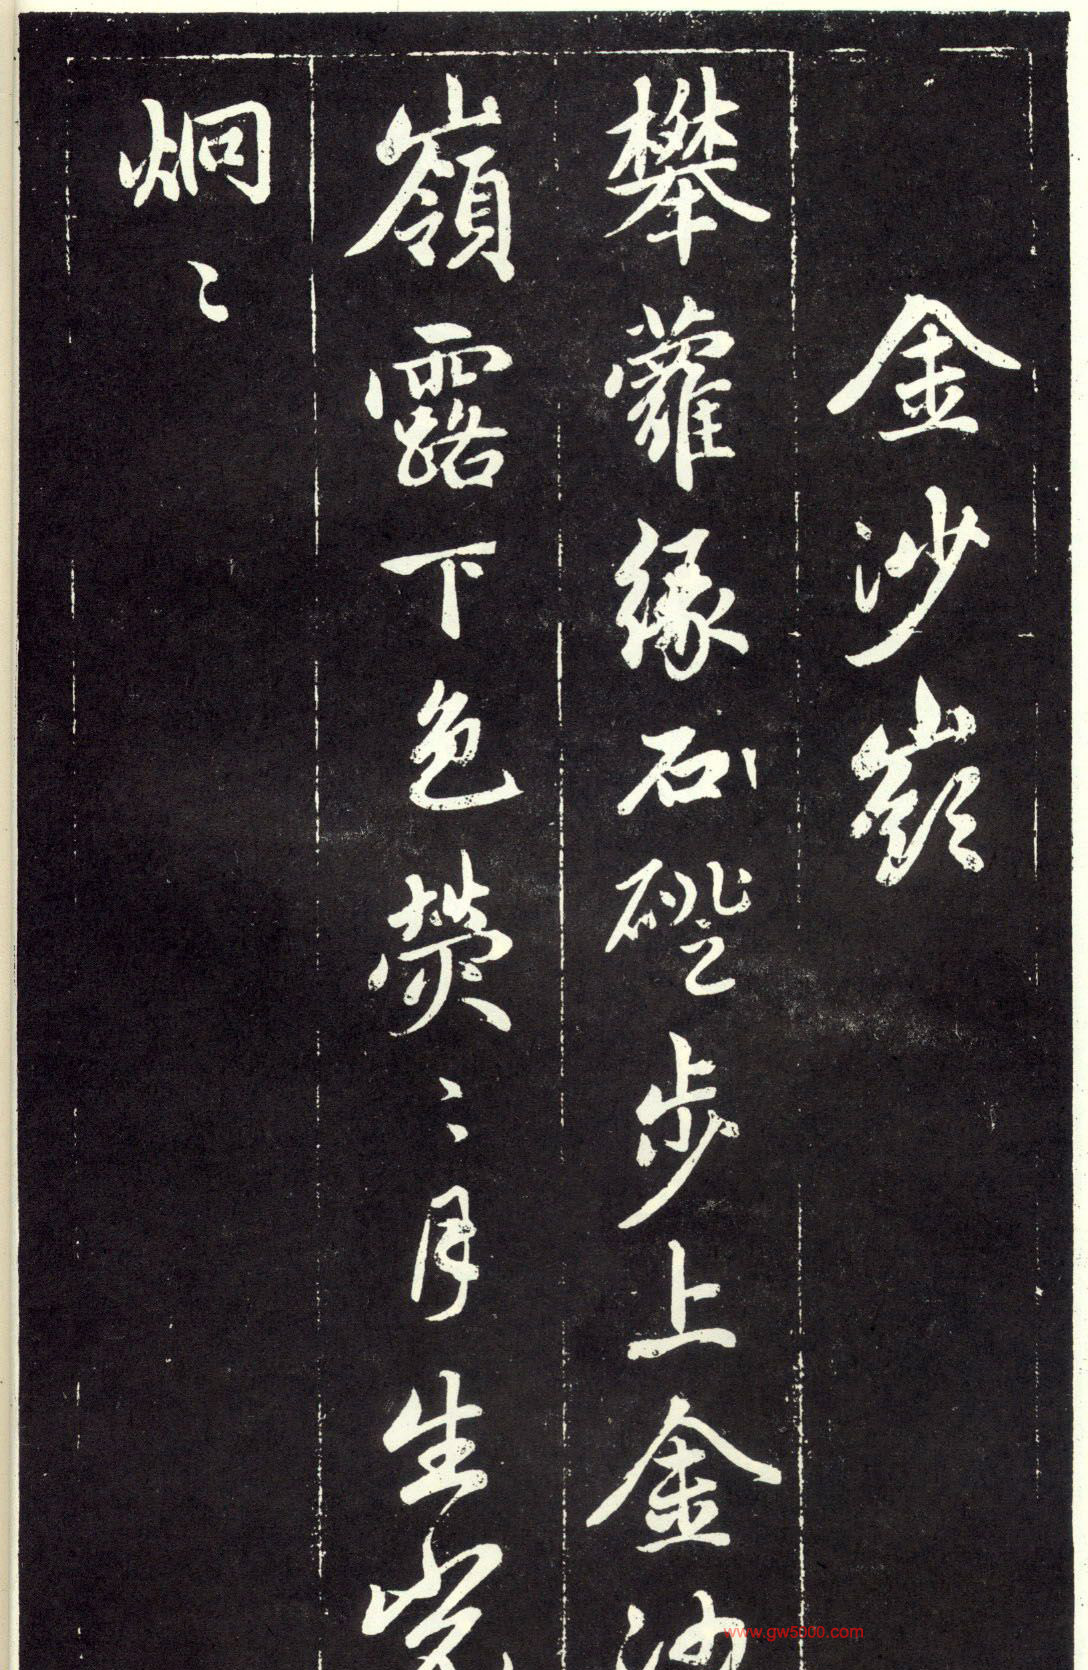 金沙嶺
攀蘿緣石磴步上金沙
嶺露下色熒〻月生光
炯〻
www.gw5000.com